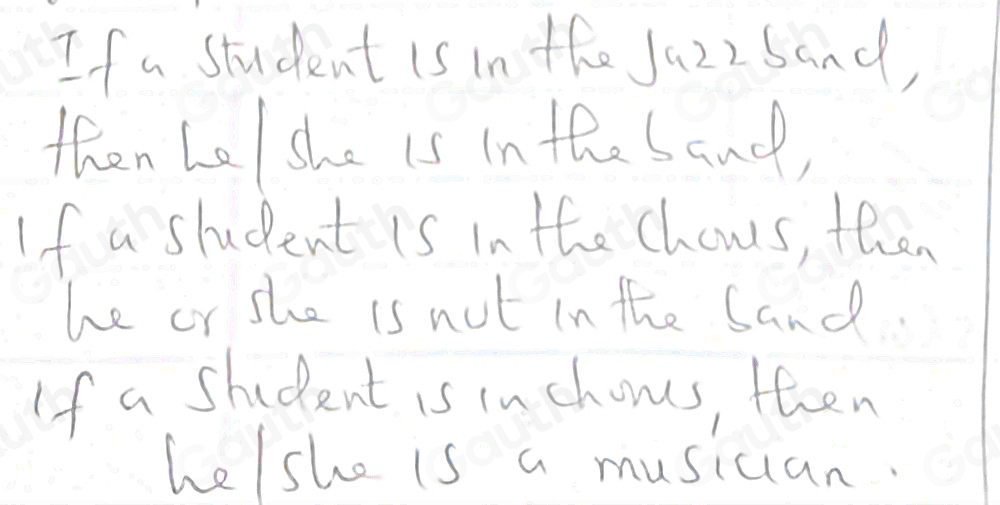 If a student is in the Jazz band,
then he/she is in the band,
if a student is in the Chorus, then
he or she is not in the band.
if a student is in chorus, then
he/she is a musician.